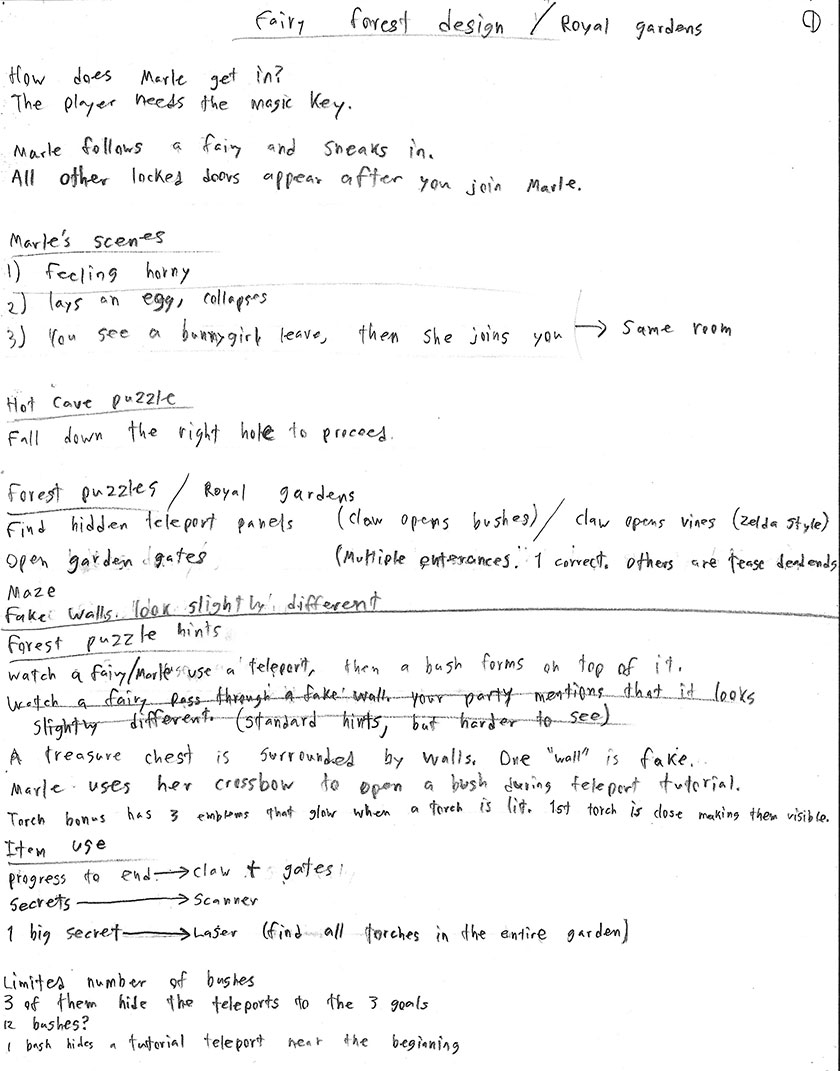 Fairy forest design / Royal gardens
1
How does Marle get in?
The player needs the magic key.
Marle follows a fairy and sneaks in.
All other locked doors appear after you join Marle.
Marle's scenes
1) feeling horny
2) lays an egg, collapses
3) You see a bunnygirl leave, then she joins you → same room
Hot cave puzzle
Fall down the right hole to proceed.
Forest puzzles / Royal gardens
Find hidden teleport panels (claw opens bushes) / claw opens vines (Zelda style)
Open garden gates (Multiple enterances. 1 correct. others are tease deadends
Maze
Fake walls. look slightly different
Forest puzzle hints
watch a fairy/Marle use a teleport, then a bush forms on top of it.
Watch a fairy pass through a fake wall. your party mentions that it looks
slightly different. (standard hints, but harder to see)
A treasure chest is surrounded by walls. One "wall" is fake.
Marle uses her crossbow to open a bush during teleport tutorial.
Torch bonus has 3 emblems that glow when a torch is lit. 1st torch is close making them visible.
Item use
progress to end → claw + gates
secrets → Scanner
1 big secret → Laser (find all torches in the entire garden)
Limited number of bushes
3 of them hide the teleports to the 3 goals
12 bushes?
1 bush hides a tutorial teleport near the beginning